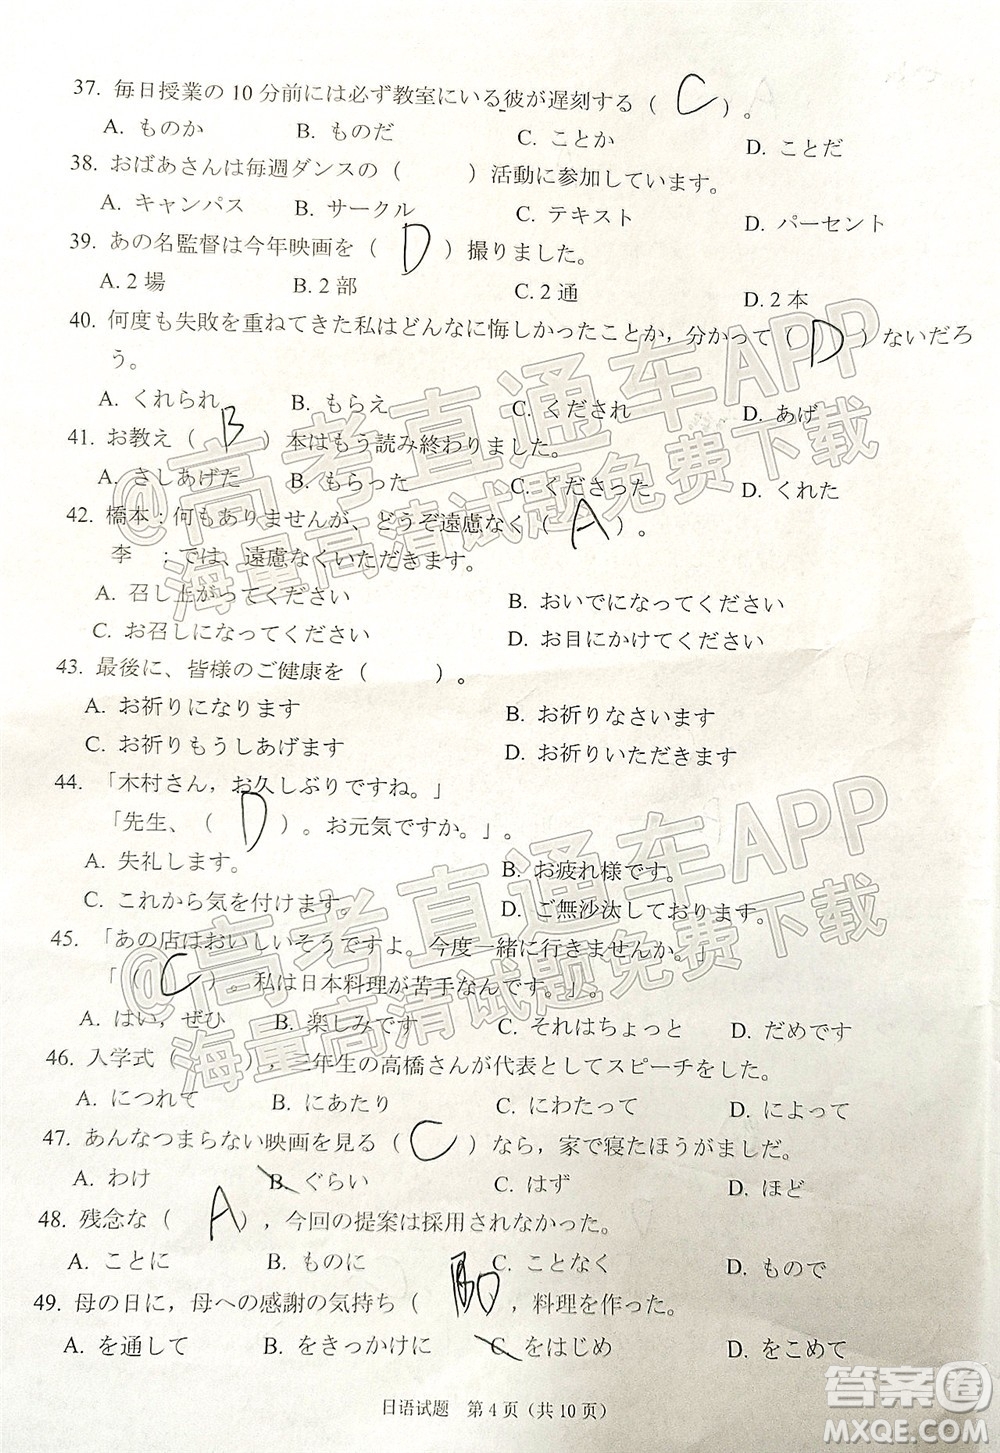 37. 毎日授業の 10 分前には必ず教室にいる彼が遅刻する（ C ）。
A. ものか B. ものだ C. ことか D. ことだ
38. おばあさんは毎週ダンスの（ ）活動に参加しています。
A. キャンパス B. サークル C. テキスト D. パーセント
39. あの名監督は今年映画を（ D ）撮りました。
A. 2 場 B. 2 部 C. 2 通 D. 2 本
40. 何度も失敗を重ねてきた私はどんなに悔しかったことか，分かって（ D ）ないだろ
う。
A. くれられ B. もらえ C. くだされ D. あげ
41. お教え（ B ）本はもう読み終わりました。
A. さしあげた B. もらった C. くださった D. くれた
42. 橋本：何もありませんが、どうぞ遠慮なく（ A ）。
李 ：では、遠慮なくいただきます。
A. 召し上がってください B. おいでになってください
C. お召しになってください D. お目にかけてください
43. 最後に、皆様のご健康を（ ）。
A. お祈りになります B. お祈りなさいます
C. お祈りもうしあげます D. お祈りいただきます
44. 「木村さん，お久しぶりですね。」
「先生、（ D ）。お元気ですか。」。
A. 失礼します。 B. お疲れ様です。
C. これから気を付けます。 D. ご無沙汰しております。
45. 「あの店はおいしいそうですよ。今度一緒に行きませんか。」
「（ C ）。私は日本料理が苦手なんです。」。
A. はい，ぜひ B. 楽しみです C. それはちょっと D. だめです
46. 入学式（ ），三年生の高橋さんが代表としてスピーチをした。
A. につれて B. にあたり C. にわたって D. によって
47. あんなつまらない映画を見る（ C ）なら，家で寝たほうがましだ。
A. わけ B. ぐらい C. はず D. ほど
48. 残念な（ A ），今回の提案は採用されなかった。
A. ことに B. ものに C. ことなく D. もので
49. 母の日に，母への感謝の気持ち（ D ，料理を作った。
A. を通して B. をきっかけに C. をはじめ D. をこめて
日语试题 第 4 页（共 10 页）
@高考直通车APP
海量高清试题免费下载
@高考直通车APP
海量高清试题免费下载
答案圈
MXQE.COM